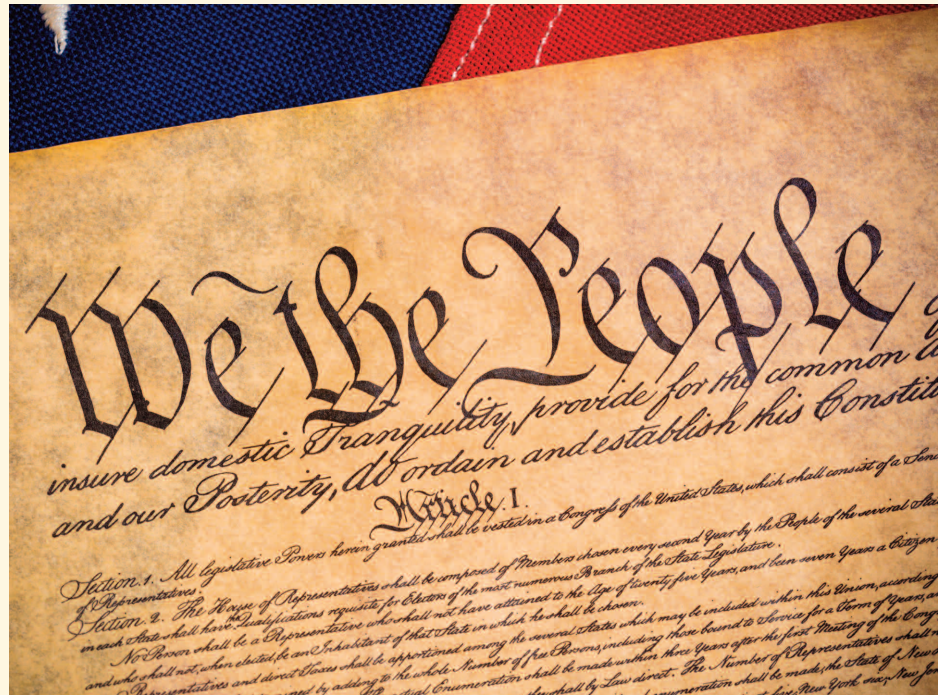 We the People
insure domestic Tranquility, provide for the common
and our Posterity, do ordain and establish this Constitu
Article. I.
Section. 1. All legislative Powers herein granted shall be vested in a Congress of the United States, which shall consist of a Sena
of Representatives.
Section. 2. The House of Representatives shall be composed of Members chosen every second Year by the People of the several State
in each State shall have the Qualifications requisite for Electors of the most numerous Branch of the State Legislature.
No Person shall be a Representative who shall not have attained to the Age of twenty five Years, and been seven Years a Citizen
and who shall not, when elected, be an Inhabitant of that State in which he shall be chosen.
Representatives and direct Taxes shall be apportioned among the several States which may be included within this Union, according
by adding to the whole Number of free Persons, including those bound to Service for a Term of Years, an
Enumeration shall be made within three Years after the first Meeting of the Cong
shall by Law direct. The Number of Representatives shall n
enumeration shall be made, the State of New
New York six, New Jer